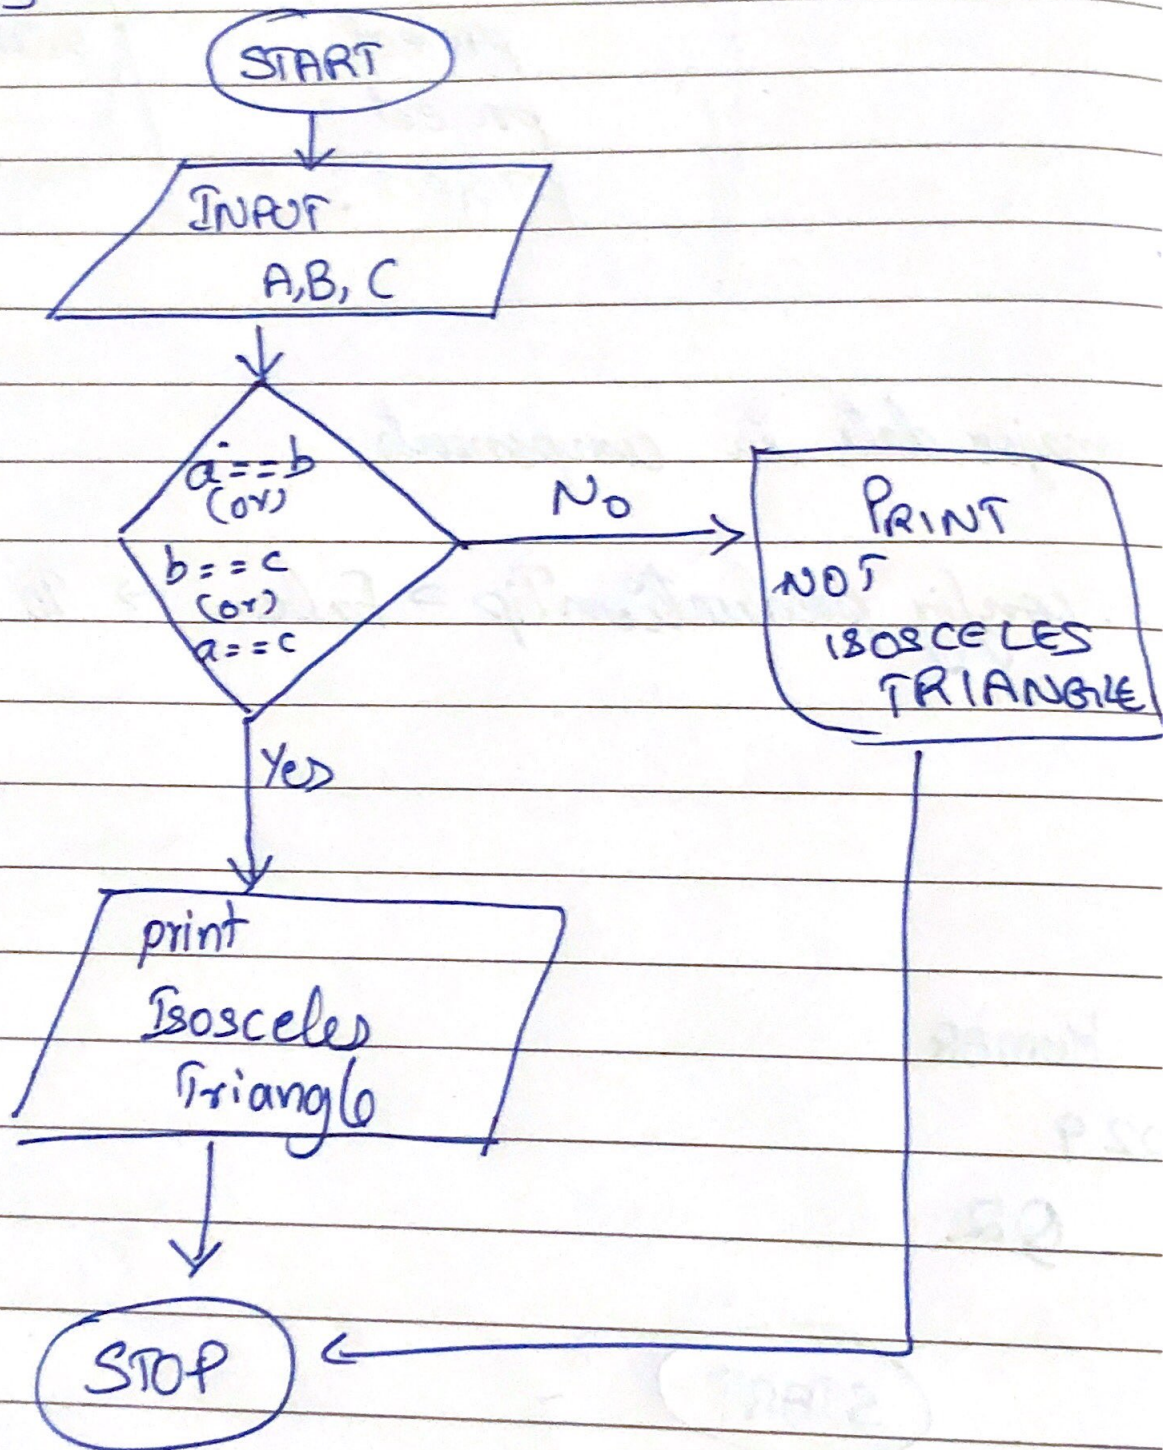 START
INPUT
A,B, C
a==b
(or)
b==c
(or)
a==c
No
PRINT
NOT
ISOSCELES
TRIANGLE
Yes
print
Isosceles
Triangle
STOP